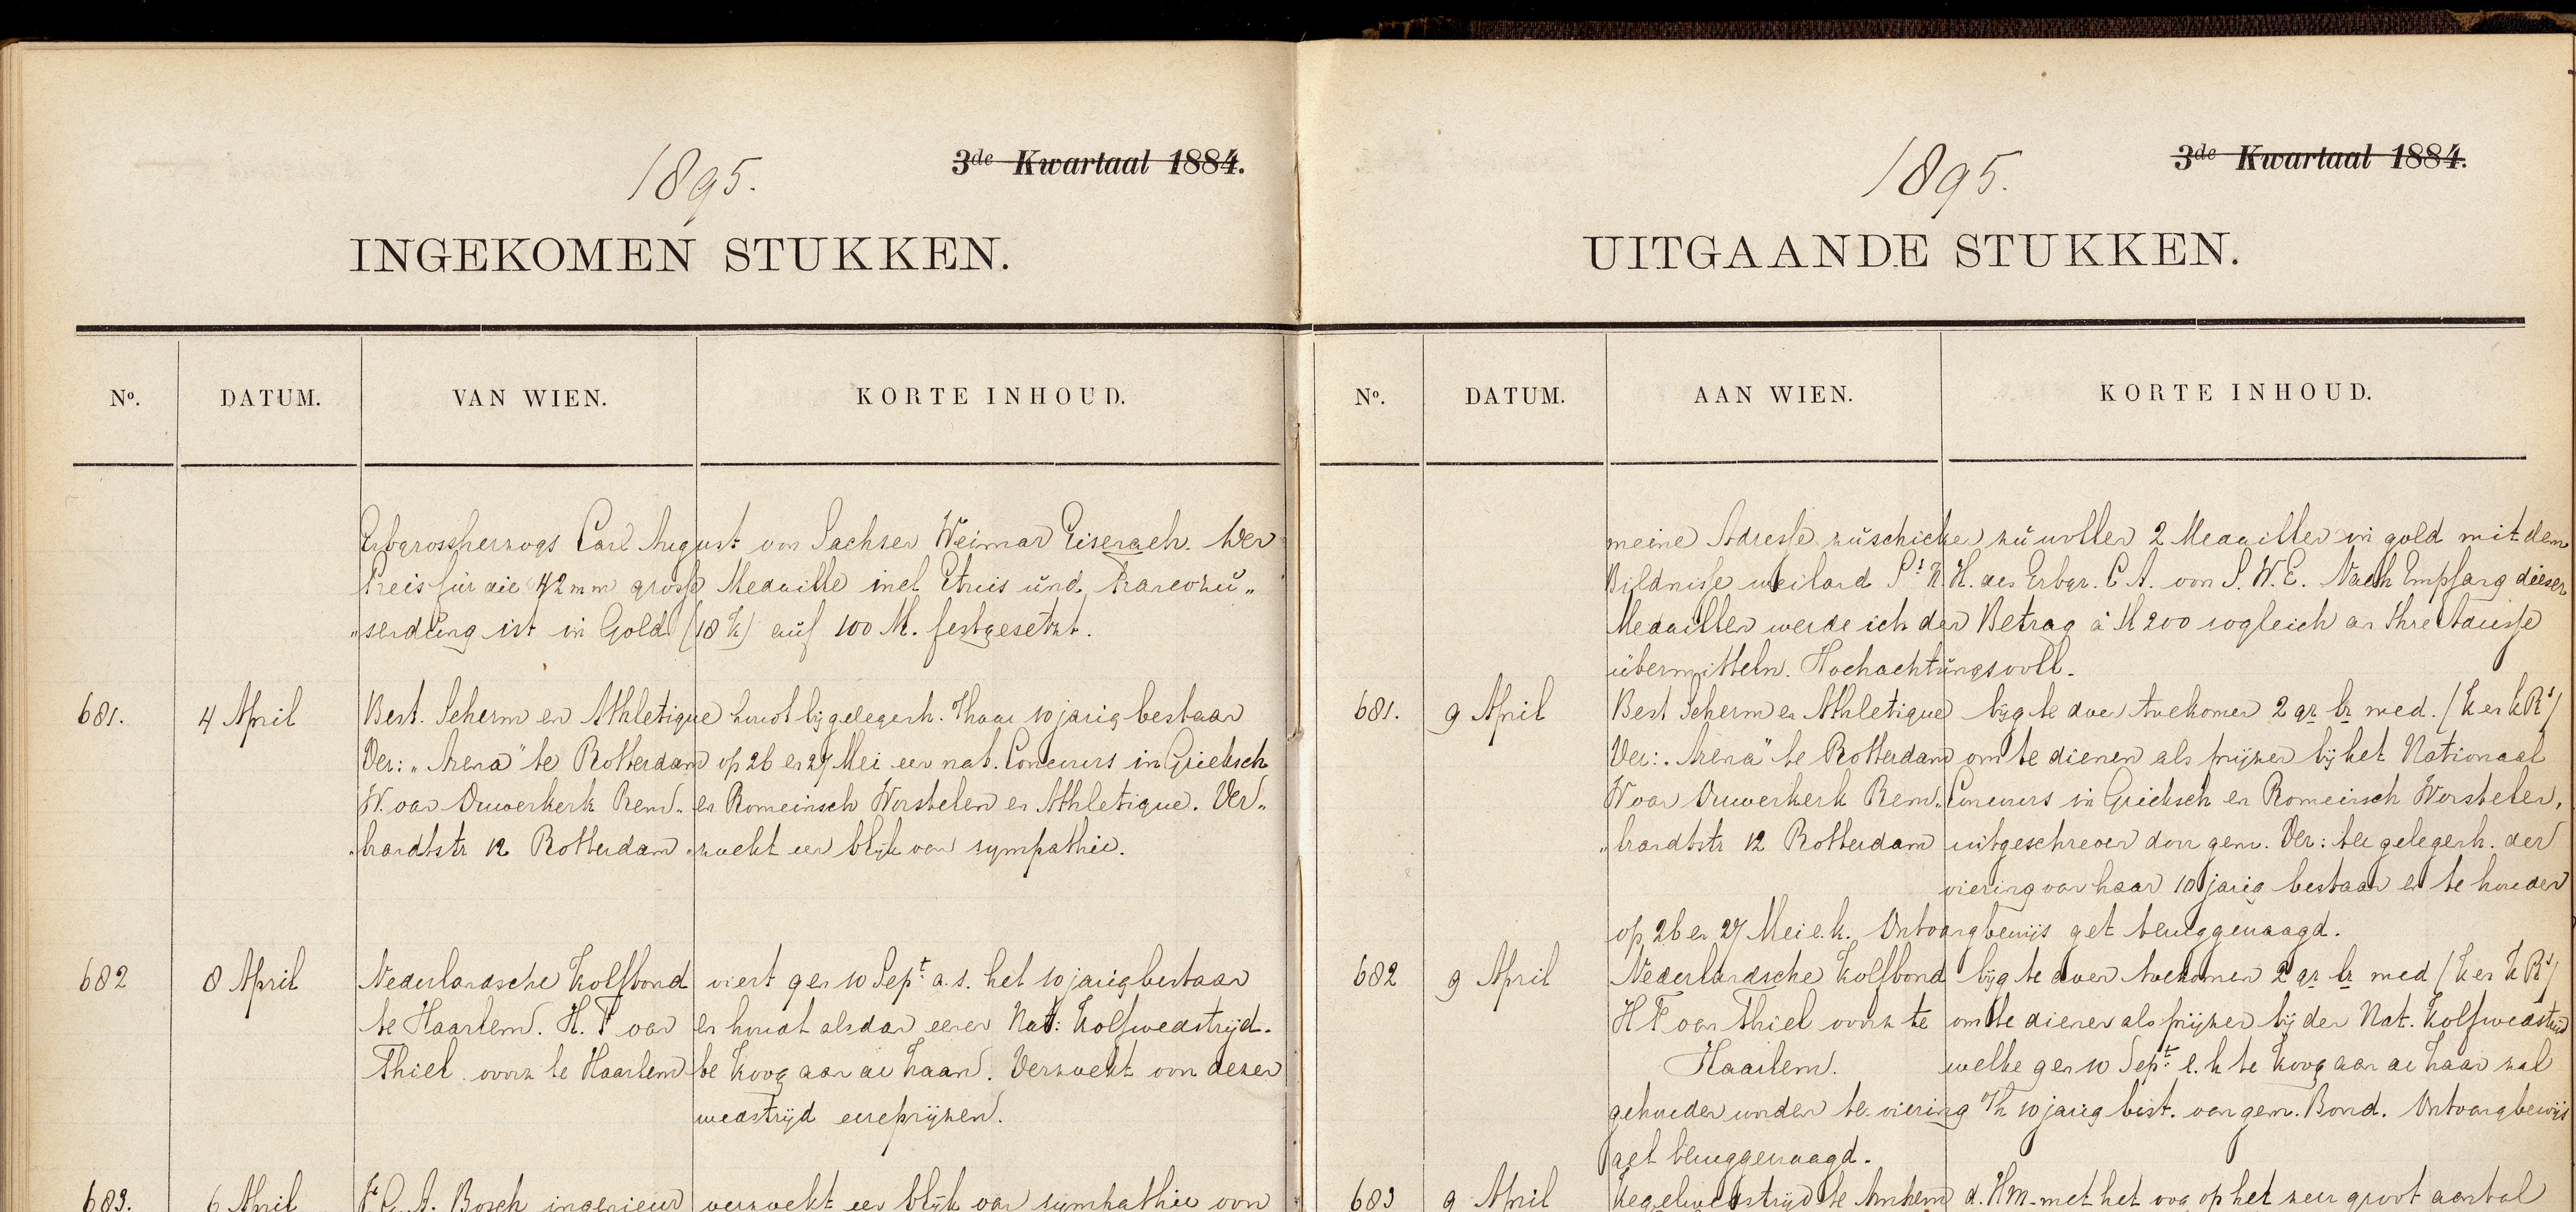 1895.
3de Kwartaal 1884.
INGEKOMEN STUKKEN.
No. DATUM. VAN WIEN. KORTE INHOUD.
Erbgrossherzogs Carl August von Sachsen Weimar Eisenach. Der
Preis für die 42 mm grosse Medaille incl Etuis und Francozu„
„sendung ist in Gold (18 K) auf 100 M. festgesetzt.
681. 4 April Best. Scherm en Athletique houdt bij gelegenh. v/h haar 10 jarig bestaan
Ver: „Arena" te Rotterdam op 26 en 27 Mei een nat. Concours in Grieksch
W. van Ouwerkerk Rem„ en Romeinsch Worstelen en Athletique. Ver„
„brandtstr 12 Rotterdam „zoekt een blijk van sympathie.
682 8 April Nederlandsche Kolfbond viert gen 10 Sept. a.s. het 10 jarig bestaan
te Haarlem. H. F van en houdt alsdan eenen Nat: Kolfwedstrijd.
Thiel voorz te Haarlem te Koog aan de Zaan. Verzoekt voor dezen
wedstrijd eereprijzen.
683. 6 April A. Bosch ingenieur verzoekt een blijk van sympathie voor
1895.
3de Kwartaal 1884.
UITGAANDE STUKKEN.
No. DATUM. AAN WIEN. KORTE INHOUD.
meine Adresse zuschicken zu wollen 2 Medaillen in gold mit dem
Bildnisse weiland Sr K. H. des Erbgr. C A. von S. W. E. Nach Empfang dieser
Medaillen werde ich den Betrag à M 200 sogleich an Ihre Adresse
übermitteln. Hochachtungsvoll.
681. 9 April Best Scherm en Athletique bijg te doen toekomen 2 gr br med. (K en K Rs)
Ver: „Arena" te Rotterdam om te dienen als prijzen bij het Nationaal
W van Ouwerkerk Rem„ Concours in Grieksch en Romeinsch Worstelen,
„brandtstr 12 Rotterdam uitgeschreven door gen. Ver: ter gelegenh. der
viering van haar 10 jarig bestaan en te houden
op 26 en 27 Mei e.k. Ontvangbewijs get teruggevraagd.
682 9 April Nederlandsche Kolfbond bijg te doen toekomen 2 gr br med (K en K Rs)
H F van Thiel voorz te om te dienen als prijzen bij den Nat. Kolfwedstrijd
Haarlem. welke gen 10 Sept. e.k te Koog aan de Zaan zal
gehouden worden te viering v/h 10 jarig best. van gem. Bond. Ontvangbewijs
get teruggevraagd.
683 9 April Kegelwedstrijd te Arnhem d. HM. met het oog op het zeer groot aantal